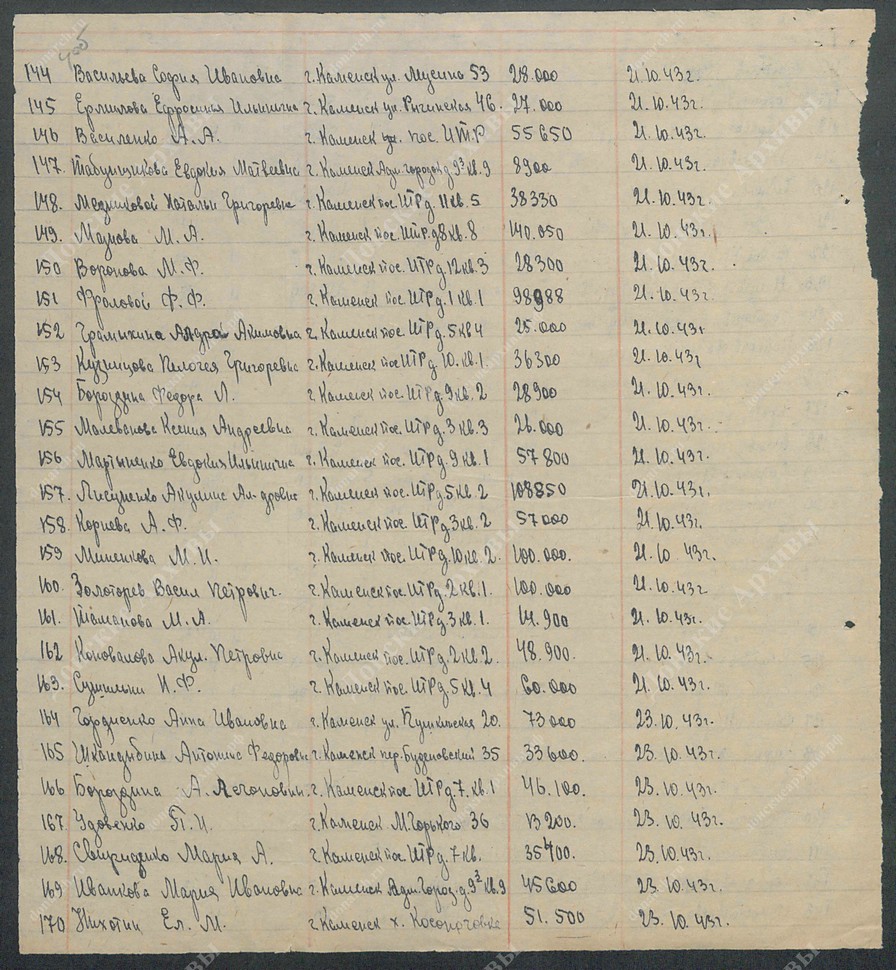 405
144 Васильева София Ивановна г. Каменск ул. Мусина 53 28.000 21.10.43г.
145 Ермилова Ефросиния Ильинична г. Каменск ул. 46. 27.000 21.10.43г.
146 Василенко А. А. г. Каменск пос. ИТР 55650 21.10.43г.
147. Табунщикова Евдокия Матвеевна г. Каменск Адм. городок д 9³ кв. 9 8900 21.10.43г.
148. Медниковой Натальи Григоревне г. Каменск пос. ИТР д. 11 кв. 5 38330 21.10.43г.
149. Мазнова М. А. г. Каменск пос. ИТР д 8 кв. 8 140.050 21.10.43г.
150 Воронова М. Ф. г. Каменск пос. ИТР д. 12 кв. 3 28300 21.10.43г.
151 Фроловой Ф. Ф. г. Каменск пос. ИТР д. 1 кв. 1 98988 21.10.43г.
152 Акимовна г. Каменск пос. ИТР д. 5 кв 4 25.000 21.10.43г
153 Кузнецова Пелогея Григоревна г. Каменск пос. ИТР д. 10. кв. 1. 36300 21.10.43г
154 Бороздина Федора Л. г. Каменск пос. ИТР д. 9 кв. 2 28900 21.10.43г.
155 Молеванова Ксения Андреевна г. Каменск пос. ИТР д. 3 кв. 3 26.000 21.10.43г.
156 Мартыненко Евдокия Ильинична г. Каменск пос. ИТР д. 9 кв. 1 57800 21.10.43г.
157. Лисученко Акулина Ал-дровне г. Каменск пос. ИТР д 5 кв. 2 108850 21.10.43г.
158. Корнева А. Ф. г. Каменск пос. ИТР д. 3 кв. 2 57000 21.10.43г.
159 Миненкова М. И. г. Каменск пос. ИТР д. 10 кв. 2. 100.000. 21.10 43г.
160. Золоторев Васил Петрович. г. Каменск пос. ИТР д. 2 кв. 1. 100.000 21.10.43г
161. Таманова М. А. г. Каменск пос. ИТР д. 3 кв. 1. 14.900 21.10.43г.
162 Коновалова Акул. Петровне г. Каменск пос. ИТР д. 2 кв. 2. 48.900. 21.10.43г.
163. Сушилин И. Ф. г. Каменск пос. ИТР д. 5 кв. 4 60.000 21.10.43г.
164 Гордиенко Анна Ивановна г. Каменск ул. Пушкинская 20. 73000 23.10.43г.
165 Шкандыбина Антонине Федоровне г. Каменск пер. Буденовский 35 33600. 23.10.43г.
166 Бороздина А. г. Каменск пос. ИТР д. 7. кв. 1 46.100. 23.10.43г.
167. Удовенко П. И. г. Каменск М. Горького 36 13200. 23.10.43г.
168. Свириденко Мария А. г. Каменск пос. ИТР д. 7 кв. 35400. 23.10.43г.
169 Иванкова Мария Ивановна г. Каменск Адм. Город. д. 9³ кв. 9 45600 23.10.43г.
170 Нихотин Ел. М. г Каменск х. Косоротовка 51.500 23.10.43г.